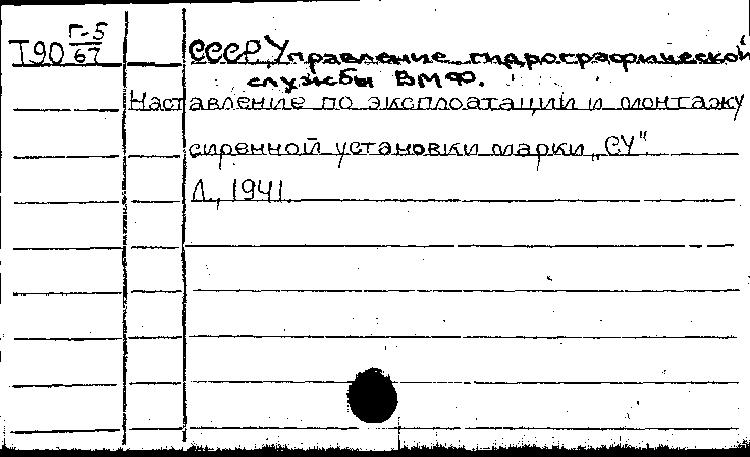 Т90 Г-5/67 СССР. Управление гидрографической
службы ВМФ.
Наставление по эксплоатации и монтажу
сиренной установки марки „СУ"
Л., 1941.